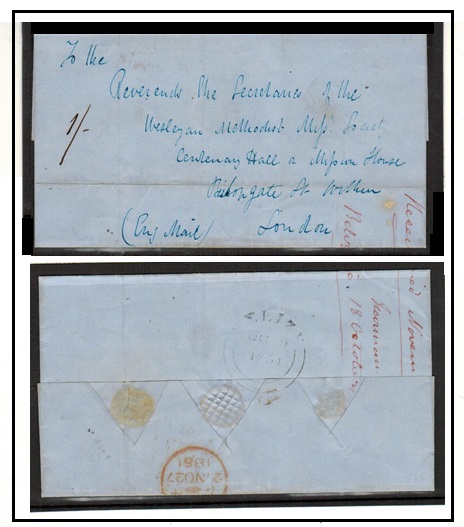 To the
Reverends the Secretaries of the
Wesleyan Methodist Miss. Society
Centenary Hall & Mission House
Bishopgate St. Within
(Eng Mail) London
1/-
18 October
2 NO 27
1851